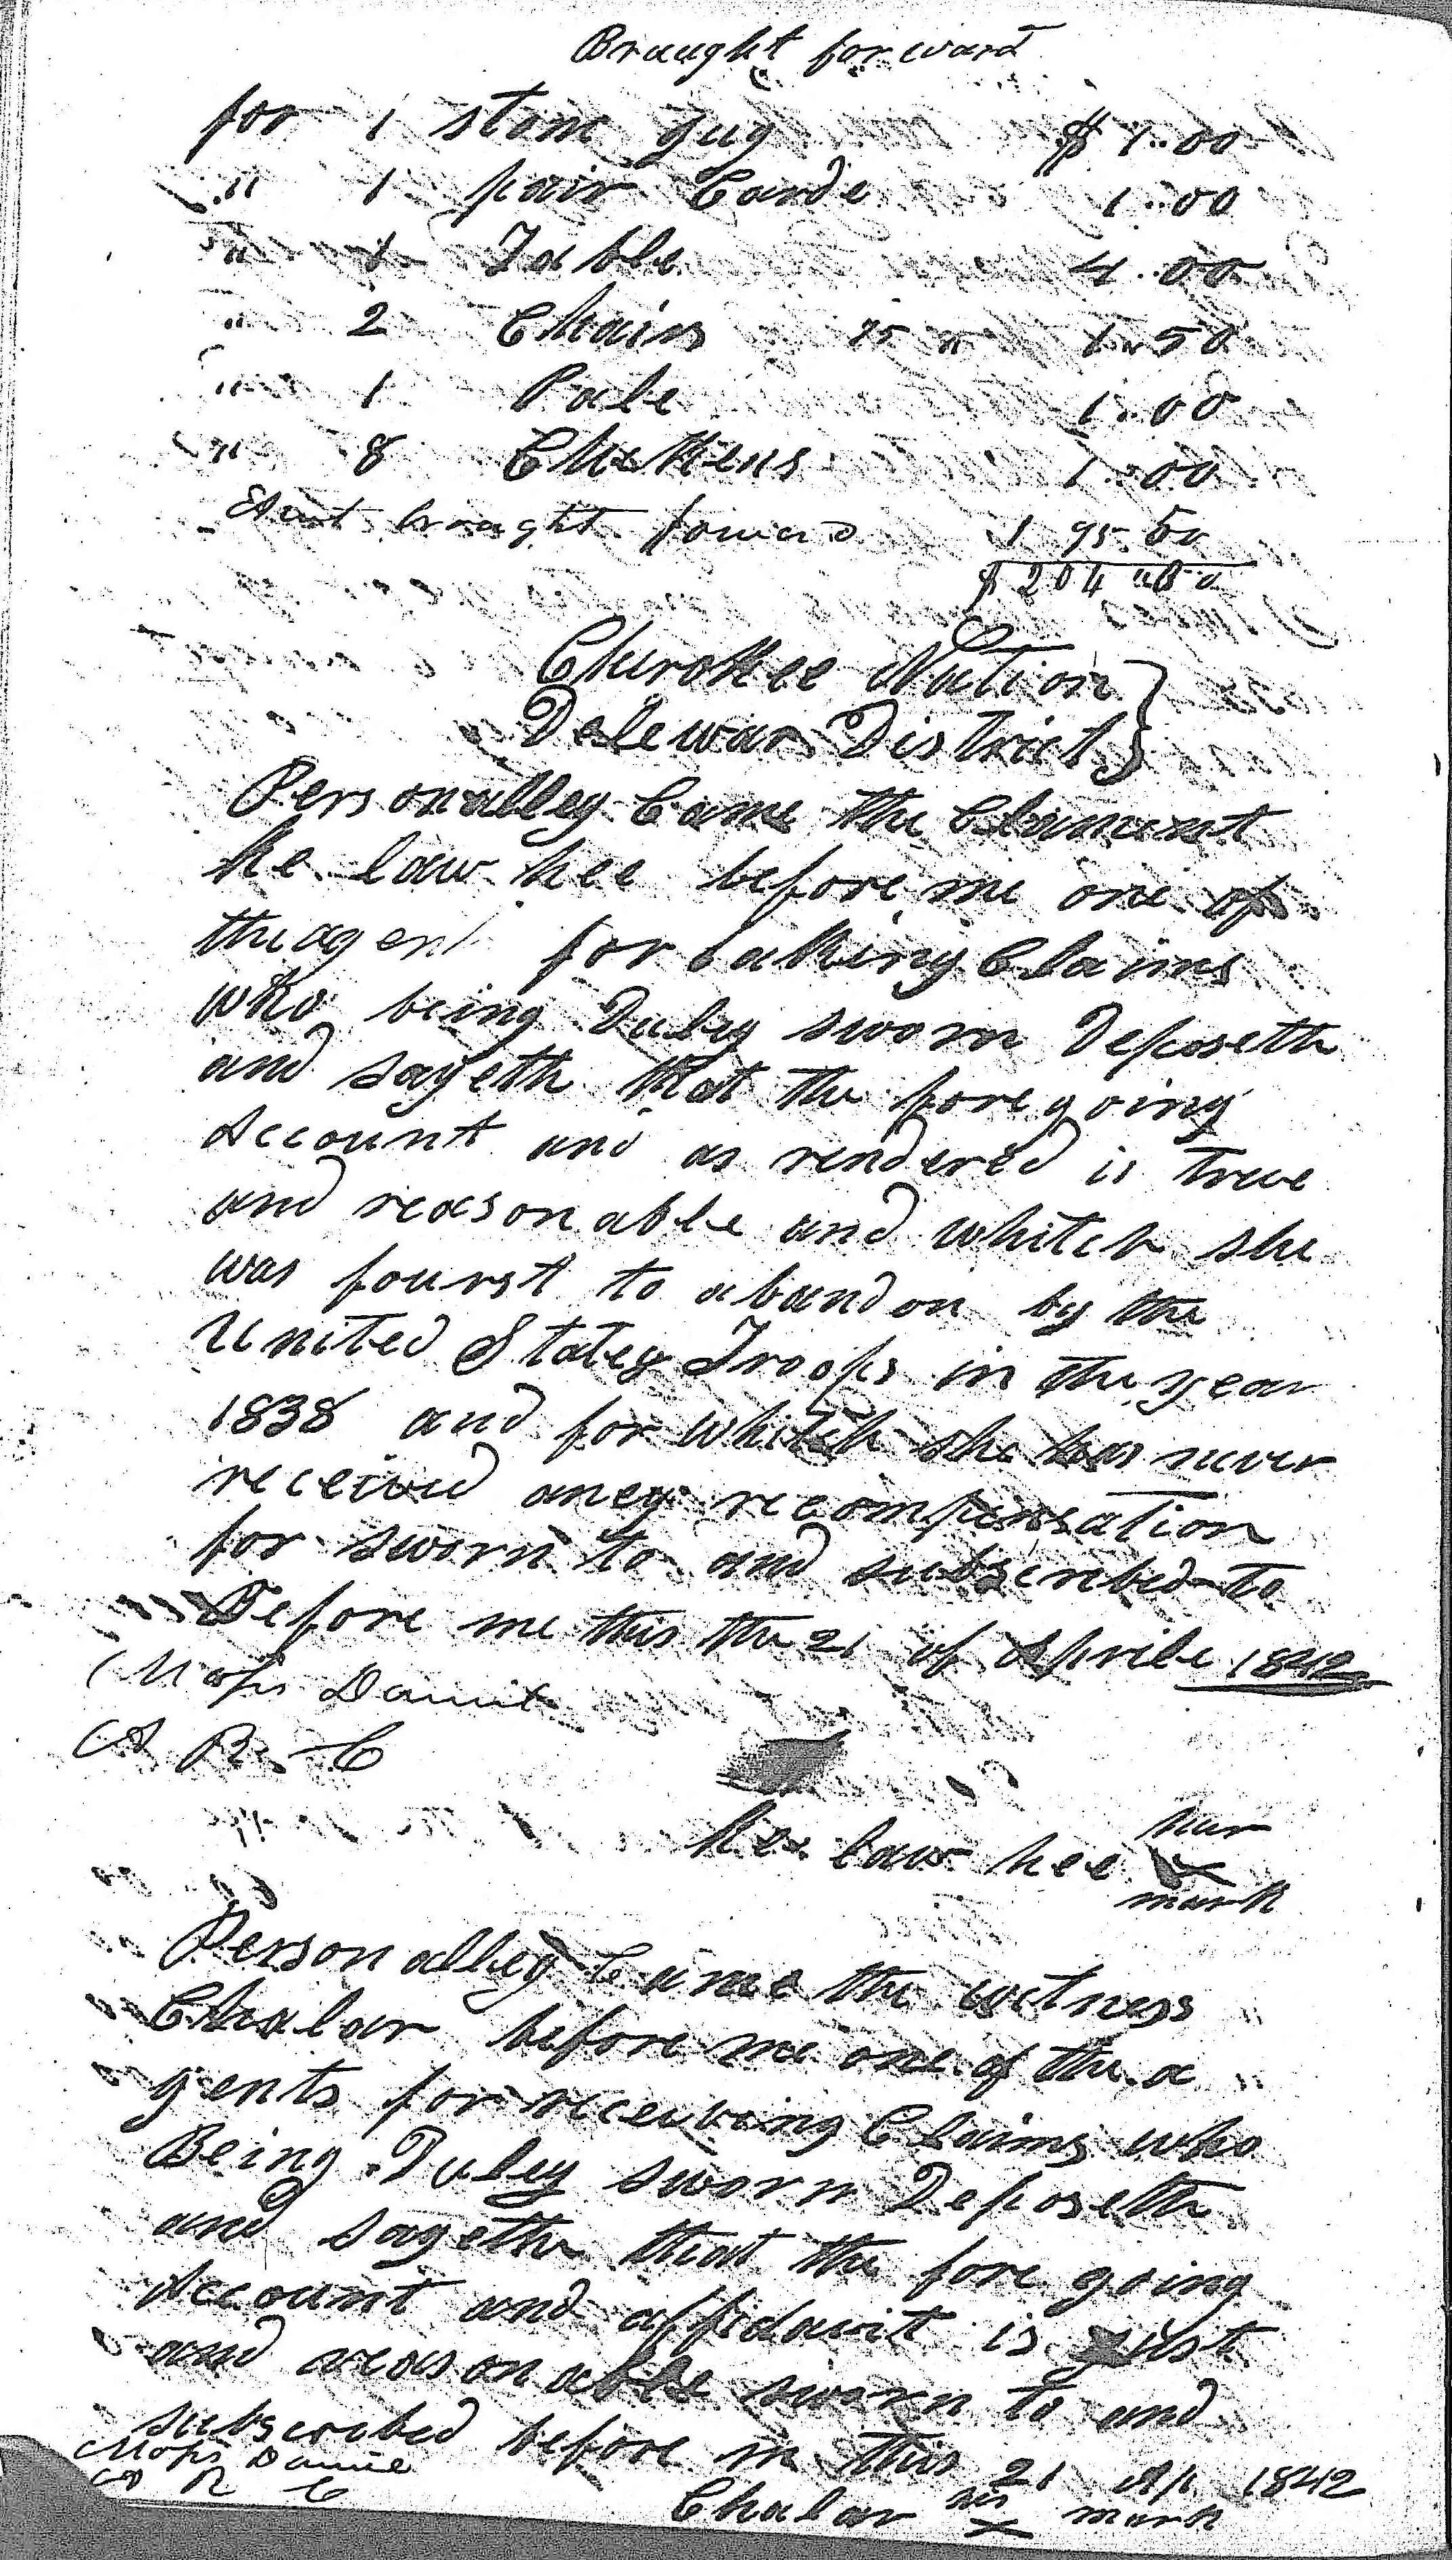 Braught forward
for 1 stone gug $1..00
" 1 pair Cards 1..00
" 1 Table 4..00
" 2 Chairs 75 " 1.50
" 1 Pale 1..00
" 8 Chekkens 1..00
Amt braught forward 195.50
$204"50
Cherokee Nation
Delewar District
Personalley Came the Clament
Ke law hee before me one of
the agent for taking Claims
who being Duley sworn Deposeth
and sayeth that the foregoing
Account and as rendered is true
and reasonable and whitch she
was fourst to abandon by the
United States Troops in the year
1838 and for whitch she has never
received aney recompensation
for sworn to and subscribed to
Before me this the 21 of Aprile 1842
A R C
Ke law hee her x mark
Personalley Came the witness
Chalar before me one of the a
gents for receiving Claims who
Being Duley sworn Deposeth
and sayeth that the fore going
Account and affidavit is just
and reasonable sworn to and
subscribed before m this 21 Ap 1842
A R C
Chalar his x mark